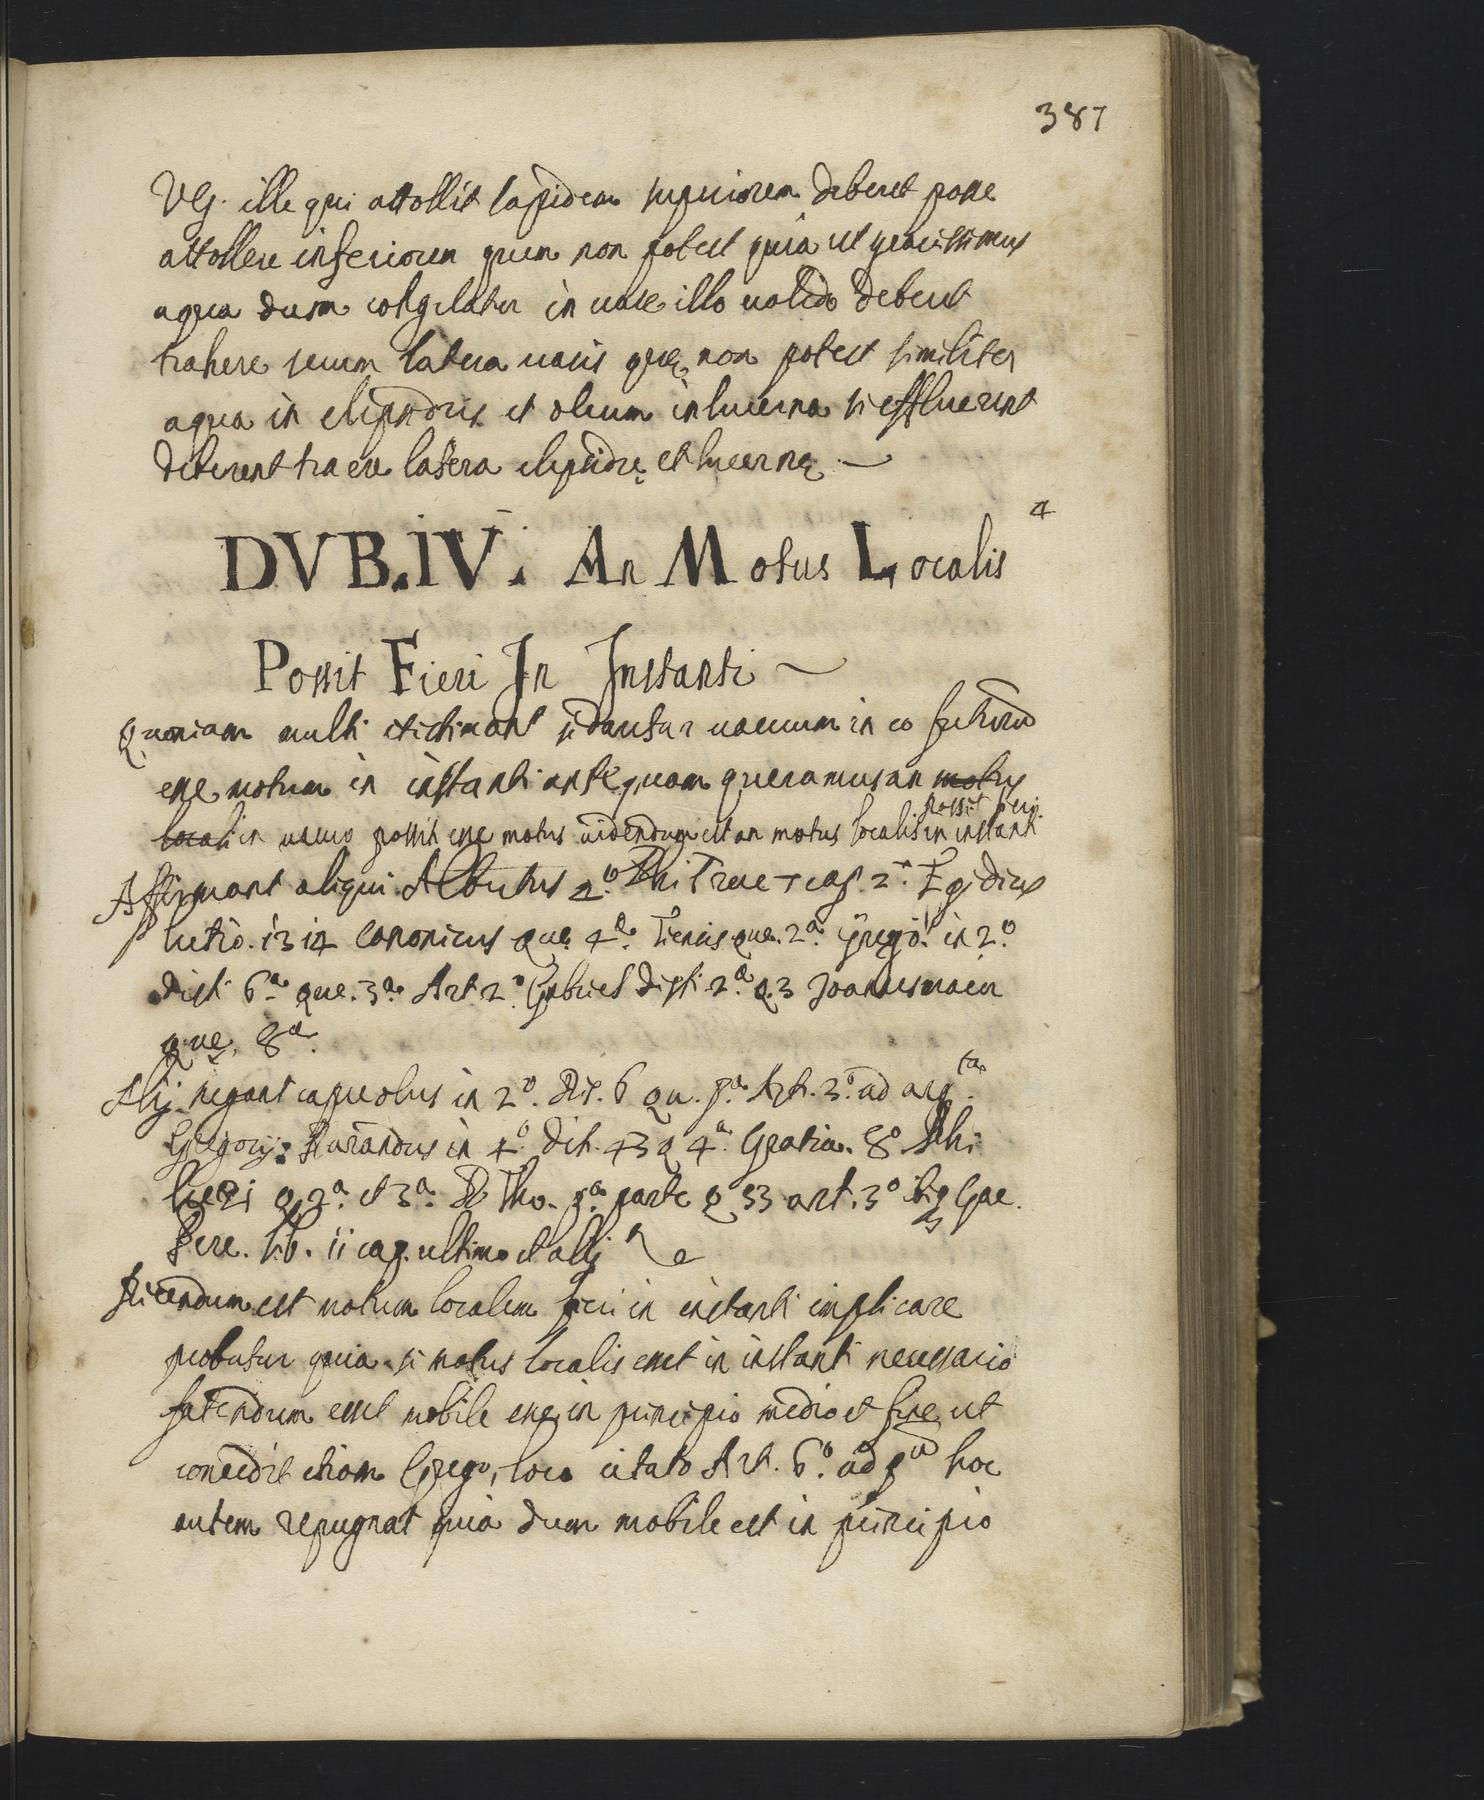 387
Vg. ille qui attollit lapidem superiorem deberet posse
attollere inferiorem quem non potest quia est gravissimus
aqua dum congelatur in vase illo valido deberet
trahere secum latera vasis quę non potest similiter
aqua in clepsidris et oleum in lucerna si effluerent
deberent traere latera clepsidrę et lucernę
4
DVB. IV. An Motus Localis
Possit Fieri In Instanti
Quoniam multi existimant si dantur vacuum in eo futurū
esse motum in instanti antequam queramus an motus
possit fieri
locali in vacuo possit esse motus videndum est an motus localis in instanti
Affirmant aliqui Albutius 2.º Phi Trac 7 cap. 2.º Egidius
lectio. 13 14 Canonicus que. 4.ª Tienis que. 2.ª Gregō. in 2.º
dist. 6.ª que. 3.ª Art 2.º Gabriel dist. 2.ª q. 3 Joannes maior
que. 8.ª
Alij negant capreolus in 2.º Dis. 6 Qu. p.ª Art. 3.º ad arg.ta
Gregorij: Durandus in 4.º dist. 43 q 4.ª Gratia. 8º Phi
Q 2.ª et 3.ª D Tho. p.ª parte Q 53 art. 3º ibi Cae.
Pere. lib. 11 cap. ultimo et alij
Dicendum est motum localem fieri in instanti implicare
probatur quia si motus localis esset in instanti necessario
fatendum esset mobile esse in principio medio et fine ut
concedit etiam Grego. loco citato Art. 6.º ad p.ū hoc
autem repugnat quia dum mobile est in principio